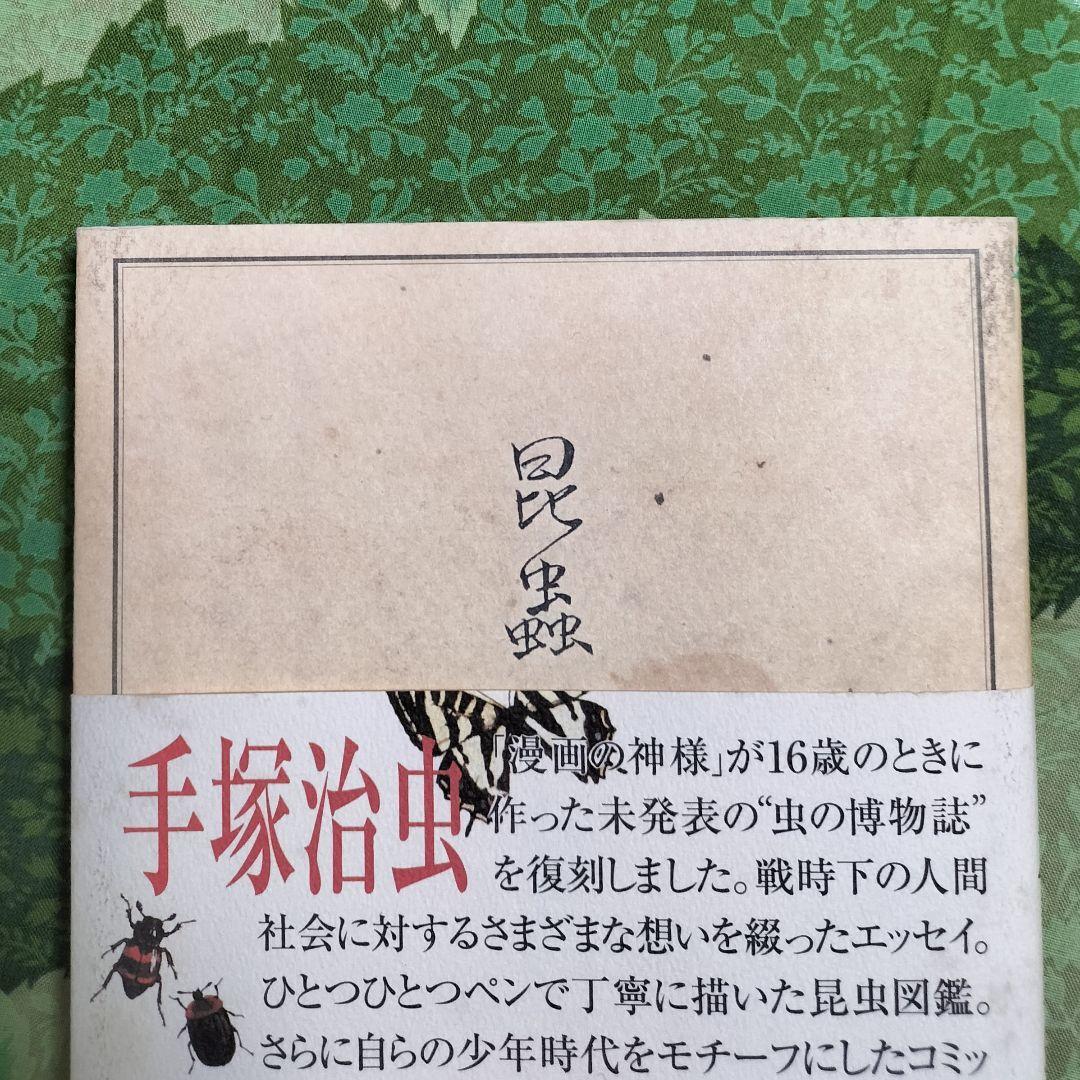 昆蟲
手塚治虫
「漫画の神様」が16歳のときに
作った未発表の“虫の博物誌”
を復刻しました。戦時下の人間
社会に対するさまざまな想いを綴ったエッセイ。
ひとつひとつペンで丁寧に描いた昆虫図鑑。
さらに自らの少年時代をモチーフにしたコミッ